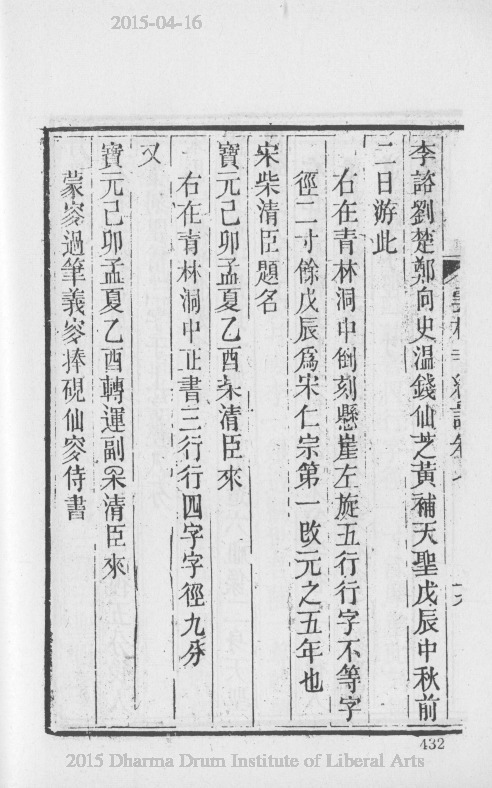 2015-04-16
李諮劉楚鄭向史溫錢仙芝黃補天聖戊辰中秋前
二日游此
右在青林洞中倒刻懸崖左旋五行行字不等字
徑二寸餘戊辰爲宋仁宗第一改元之五年也
宋柴清臣題名
寶元己卯孟夏乙酉清臣來
右在青林洞中正書三行行四字字徑九分
又
寶元己卯孟夏乙酉轉運副清臣來
蒙㝐過筆義㝐捧硯仙㝐侍書
432
2015 Dharma Drum Institute of Liberal Arts